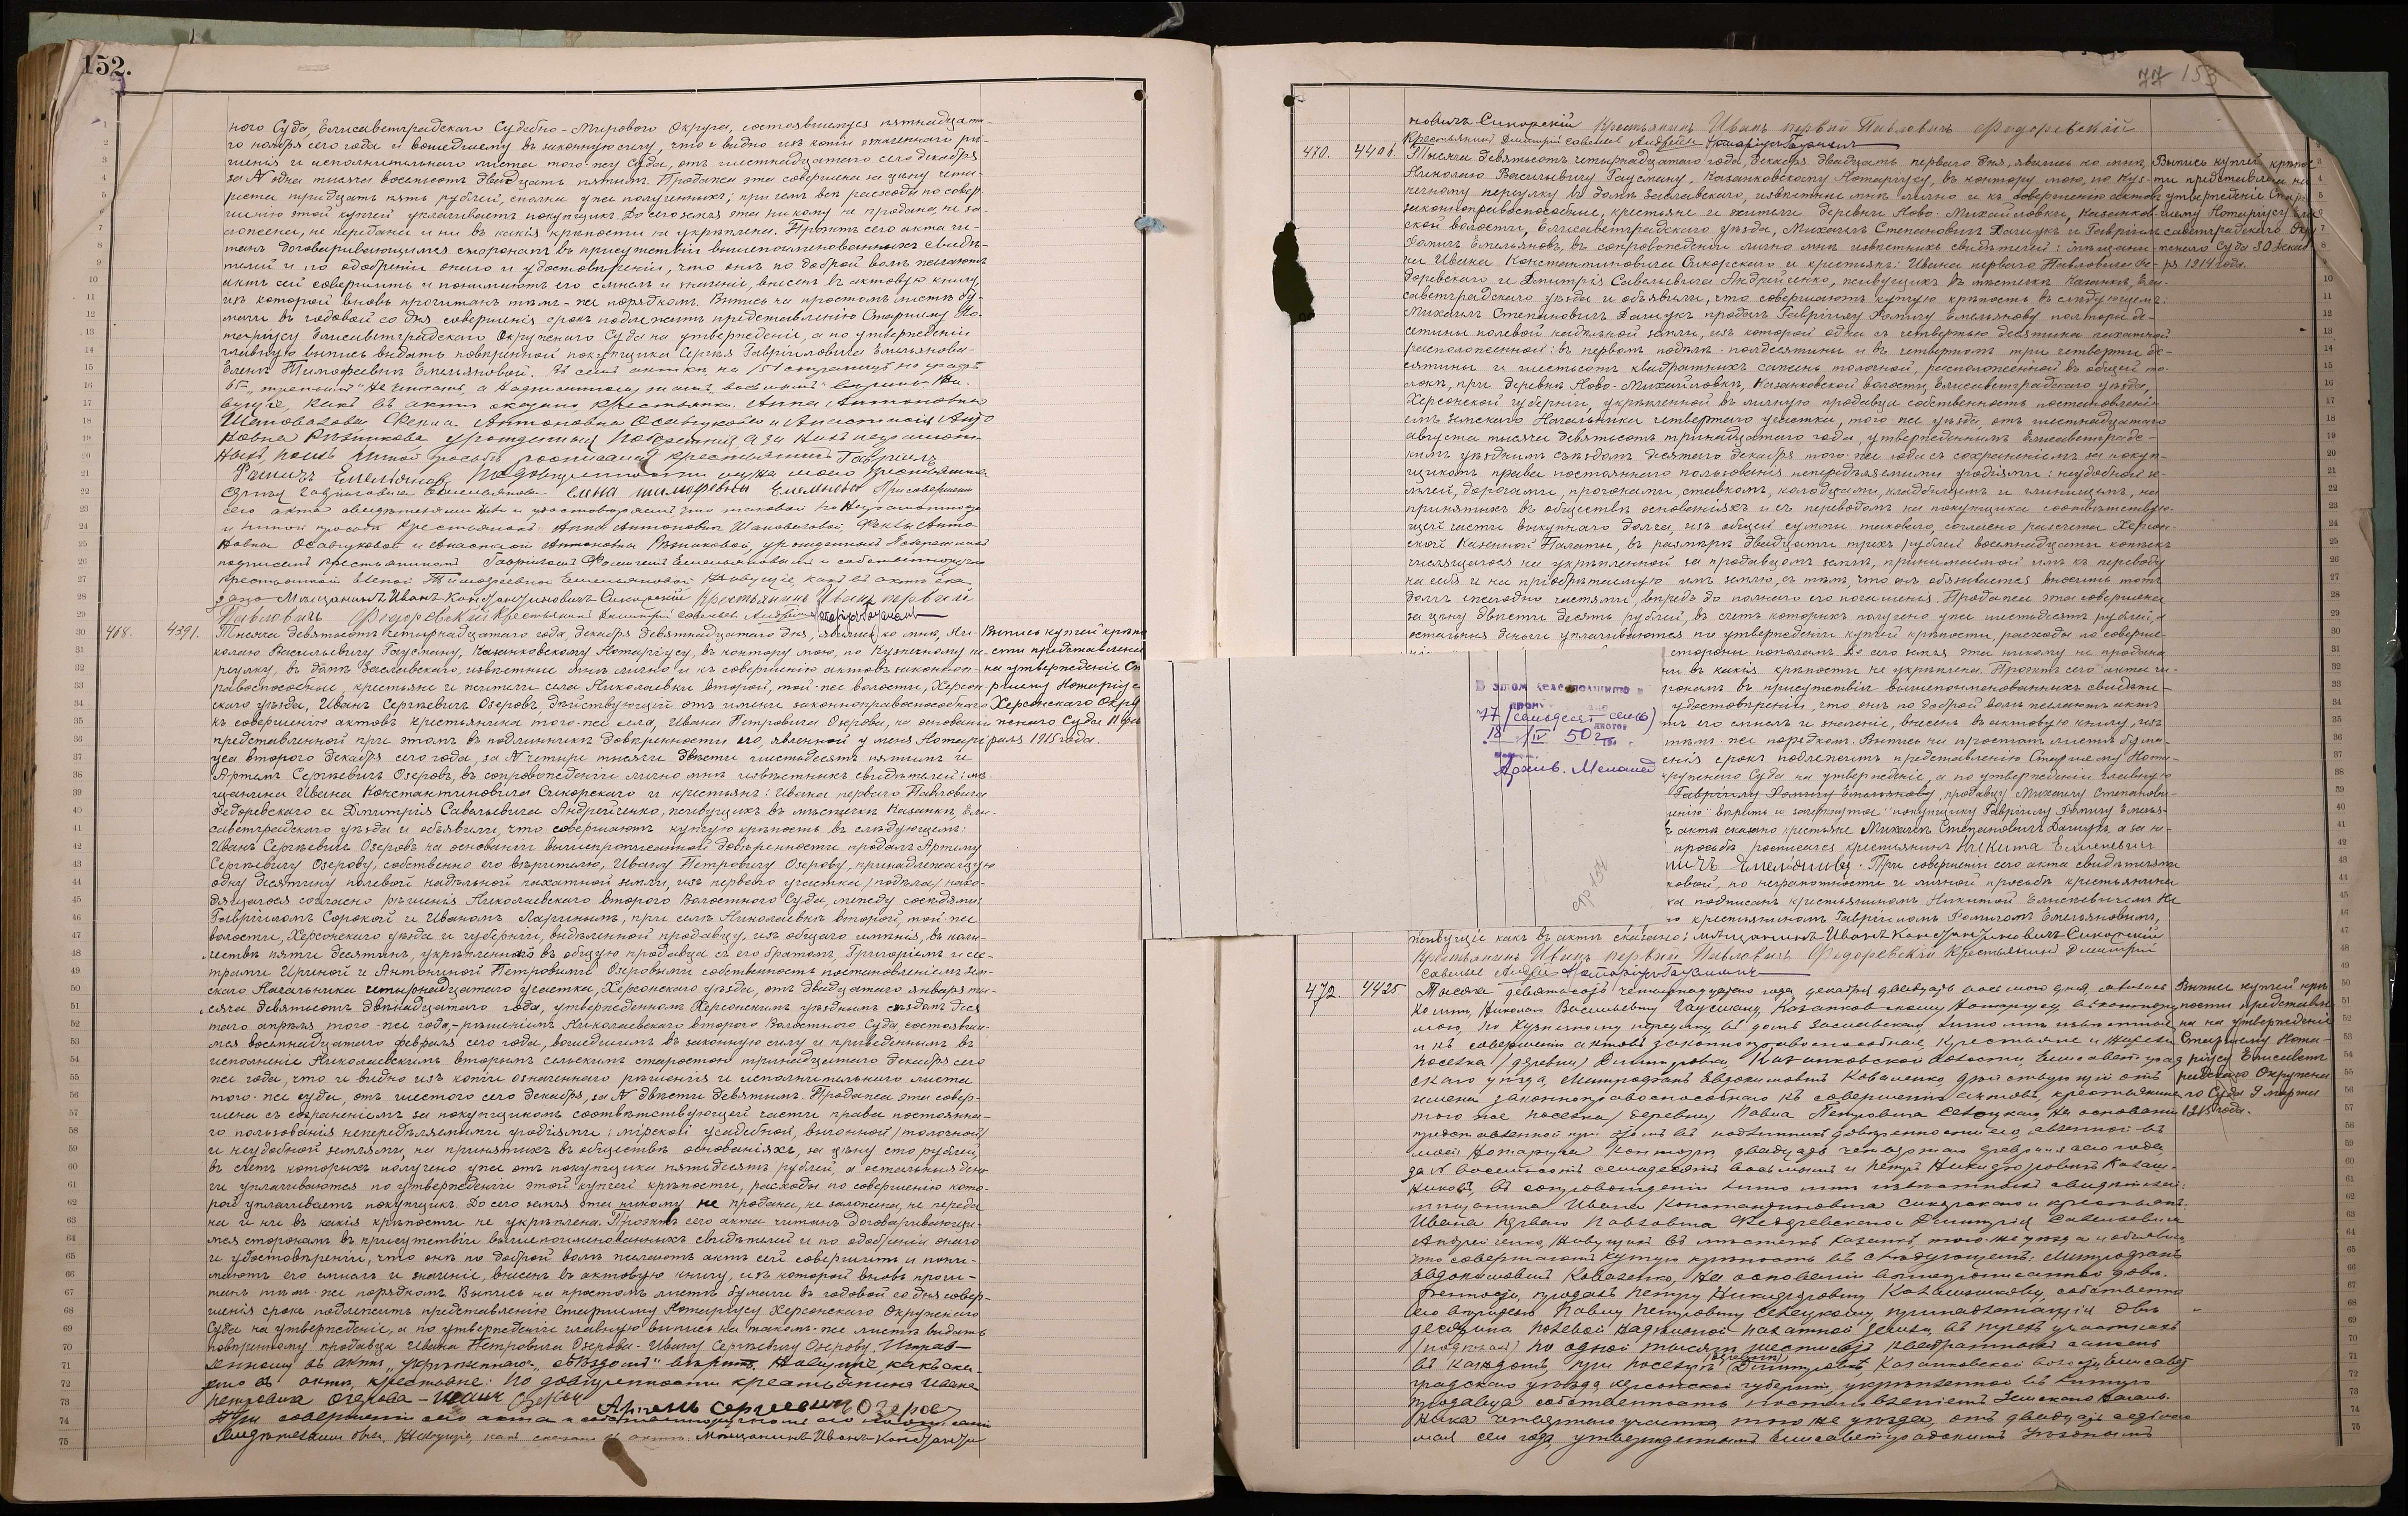 152.
ного Суда, Елисаветградскаго Судебно-Мирового Округа, состоявшемуся пятнадцата-
го ноября сего года и вошедшему въ законную силу, что и видно изъ копіи означеннаго рѣ-
шенія и исполнительнаго листа того же Суда, отъ шестнадцатаго сего декабря
за N одна тысяча восемьсотъ двадцать пятымъ. Продажа эта совершена за цѣну четы-
реста тридцать пять рублей, сполна уже полученныхъ; при чемъ всѣ расходы по совер-
шенію этой купчей уплачиваетъ покупщикъ. До сего земля эта никому не продана, не за-
ложена, не передана и ни въ какія крѣпости не укрѣплена. Проэктъ сего акта чи-
танъ договаривающимся сторонамъ въ присутствіи вышепоименованныхъ свидѣ-
телей и по одобреніи онаго и удостовѣреніи, что онѣ по доброй волѣ желаютъ
актъ сей совершить и понимаютъ его смыслъ и значеніе, внесенъ въ актовую книгу,
изъ которой вновь прочитанъ тѣмъ-же порядкомъ. Выпись на простомъ листѣ бу-
маги въ годовой со дня совершенія срокъ подлежитъ представленію Старшему Но-
таріусу Елисаветградскаго Окружнаго Суда на утвержденіе, а по утвержденіи
главную выпись выдать повѣренной покупщика Сергѣя Гавріиловича Емельянова-
Еленѣ Тимофеевнѣ Емельяновой. Въ семъ актѣ на 151 страницѣ
вущіе, какъ въ актѣ сказано, крестьянки: Анна Антоновна
Шаповалова Фекла Антоновна Осадчукова и Анастасія Анто
новна Рѣзникова, урожденныя а за нихъ неграмот-
ныхъ, личной просьбѣ росписался крестьянинъ Гавріилъ
Фомичъ Емельянов По довѣренности мужа моего крестьянина
Сергѣя Гавриловича Емельянова Елена Тимофевна Емельнова При совершеніи
сего акта свидѣтелями были и удостовѣряемъ что таковой по неграмотности
и личной просьбѣ крестьянокъ: Анны Антоновны Шаповаловой, Феклы Анто
новны Осадчуковой и Анастасіи Антоновны Рѣзниковой, урожденныхъ
подписанъ крестьяниномъ Гавріиломъ Фомичемъ Емельяновымъ и собственноручно
крестьянкой Еленой Тимофеевной Емельяновой Живущіе, какъ въ актѣ ска
зано Мѣщанинъ Иванъ Константиновичъ Сикорскій Крестьянинъ Иванъ первый
Павловичъ Федоревскій Крестьянинъ Дмитрій Савельевъ Андрейченко Нотаріусъ Гаусманъ
468. 4391. Тысяча девятьсотъ четырнадцатаго года, декабря девятнадцатаго дня, явились ко мнѣ, Ни-
колаю Васильевичу Гаусману, Казанковскому Нотаріусу, въ контору мою, по Кузнечному пе-
реулку, въ домѣ Заславскаго, извѣстные мнѣ лично и къ совершенію актовъ законноп-
равоспособные, крестьяне и жители села Николаевки второй, той-же волости, Херсон-
скаго уѣзда, Иванъ Сергѣевичъ Озеровъ, дѣйствующій отъ имени законноправоспособнаго
къ совершенію актовъ крестьянина того-же села, Ивана Петровича Озерова, на основаніи
представленной при этомъ въ подлинникѣ довѣренности его, явленной у меня Нотарі-
уса второго декабря сего года, за N четыре тысячи двѣсти шестьдесятъ пятымъ и
Артемъ Сергѣевичъ Озеровъ, въ сопровожденіи лично мнѣ извѣстныхъ свидѣтелей: мѣ-
щанина Ивана Константиновича Сикорскаго и крестьянъ: Ивана перваго Павловича
Федоревскаго и Дмитрія Савельевича Андрейченко, живущихъ въ мѣстечкѣ Казанкѣ, Ели-
саветградскаго уѣзда и объявили, что совершаютъ купчую крѣпость въ слѣдующемъ:
Иванъ Сергѣевичъ Озеровъ на основаніи вышепрописанной довѣренности продалъ Артему
Сергѣевичу Озерову, собственно его вѣрителю, Ивану Петровичу Озерову, принадлежащую
одну десятину полевой надѣльной пахатной земли, изъ перваго участка /подѣла/ нахо-
дящагося согласно рѣшенія Николаевскаго второго Волостного Суда, между сосѣдями
Гавріиломъ Сорокой и Иваномъ Ларинымъ, при селѣ Николаевкѣ второй, той-же
волости, Херсонскаго уѣзда и губерніи, выдѣленной продавцу, изъ общаго имѣнія, въ коли-
чествѣ пяти десятинъ, укрѣпленнаго въ общую продавца съ его братомъ, Григоріемъ и сес-
трами Ириной и Антониной Петровыми Озеровыми собственность постановленіемъ зем-
скаго Начальника четырнадцатаго участка, Херсонскаго уѣзда, отъ двадцатаго января ты-
сяча девятьсотъ двѣнадцатаго года, утвержденномъ Херсонскимъ уѣзднымъ съѣздомъ деся
таго апрѣля того-же года,-рѣшеніемъ Николаевскаго второго Волостного Суда, состоявши-
мся восемнадцатаго февраля сего года, вошедшимъ въ законную силу и приведеннымъ въ
исполненіе Николаевскимъ вторымъ сельскимъ старостою тринадцатаго декабря сего
же года, что и видно изъ копіи означеннаго рѣшенія и исполнительнаго листа
того-же суда, отъ шестого сего декабря, за N двѣсти девятымъ. Продажа эта совер-
шена съ сохраненіемъ за покупщикомъ соотвѣтствующей части права постоянна-
го пользованія непередѣляемыми угодіями: мірской усадебной, выгонной /толочной/
и неудобной землями, на принятыхъ въ обществѣ основаніяхъ, за цѣну сто рублей,
въ счетъ которыхъ получено уже отъ покупщика пятьдесятъ рублей, а остальныя день
ги уплачиваются по утвержденіи этой купчей крѣпости, расходы по совершенію кото-
рой уплачиваетъ покупщикъ. До сего земля эта никому не продана, не заложена, не переда
на и ни въ какія крѣпости не укрѣплена. Проэктъ сего акта читанъ договаривающи-
мся сторонамъ въ присутствіи вышепоименованныхъ свидѣтелей и по одобреніи онаго
и удостовѣреніи, что онѣ по доброй волѣ желаютъ актъ сей совершить и пони-
маютъ его смыслъ и значеніе, внесенъ въ актовую книгу, изъ которой вновь прочи-
танъ тѣмъ-же порядкомъ. Выпись на простомъ листѣ бумаги въ годовой со дня совер-
шенія срокъ подлежитъ представленію Старшему Нотаріусу Херсонскаго Окружнаго
Суда на утвержденіе, а по утвержденіи главную выпись на такомъ-же листѣ выдать
повѣренному продавца Ивана Петровича Озерова-Ивану Сергѣевичу Озерову. Исправ-
ленному въ актѣ "укрѣпленнаго", "съѣздомъ" вѣрить. Живущіе, какъ ска-
зано въ актѣ, крестьяне: По довѣренности крестьянина Ивана
Петровича Озерова - Иванъ Озеровъ Артемъ Сергеевичъ Озеров
При совершеніи сего акта и собственноручномъ его подписаніи
свидѣтелями были, Живущіе, какъ сказано въ актѣ: Мѣщанинъ Иванъ Константи
Выпись купчей крѣпо
сти представлена
на утвержденіе Ст
ршему Нотаріус
Херсонскаго Окру
жного Суда 11 фев
раля 1915 года.
77 153
новичъ Сикорскій Крестьянинъ Иванъ первый Павловичъ Федоревскій
Крестьянинъ Дмитрій Савельевъ Андрейченко Нотаріусъ Гаусманъ
470. 4406. Тысяча девятьсотъ четырнадцатаго года, декабря двадцать перваго дня, явились ко мнѣ,
Николаю Васильевичу Гаусману, Казанковскому Нотаріусу, въ контору мою, по Куз-
нечному переулку въ домѣ Заславскаго, извѣстные мнѣ лично и къ совершенію актовъ
законноправоспособные, крестьяне и жители деревни Ново-Михайловки, Казанков-
ской волости, Елисаветградскаго уѣзда, Михаилъ Степановичъ Дацукъ и Гавріилъ
Фомичъ Емельяновъ, въ сопровожденіи лично мнѣ извѣстныхъ свидѣтелей: мѣщани-
на Ивана Константиновича Сикорскаго и крестьянъ: Ивана перваго Павловича Фе-
доревскаго и Дмитрія Савельевича Андрейченко, живущихъ въ мѣстечкѣ Казанкѣ, Ели-
саветградскаго уѣзда и объявили, что совершаютъ купчую крѣпость въ слѣдующемъ:
Михаилъ Степановичъ Дацукъ продалъ Гавріилу Фомичу Емельянову полторы де-
сятины полевой надѣльной земли, изъ которой одна съ четвертью десятина пахатной
расположенной: въ первомъ подѣлѣ-полдесятины и въ четвертомъ три четверти де-
сятины и шестьсотъ квадратныхъ сажень толочной, расположенной въ общей то-
локѣ, при деревнѣ Ново-Михайловкѣ, Казанковской волости, Елисаветградскаго уѣзда,
Херсонской губерніи, укрѣпленной въ личную продавца собственность постановлені-
емъ Земскаго Начальника четвертаго участка, того-же уѣзда, отъ шестнадцатаго
августа тысяча девятьсотъ тринадцатаго года, утвержденнымъ Елисаветградс-
кимъ уѣзднымъ съѣздомъ десятаго декабря того-же года съ сохраненіемъ за покуп-
щикомъ права постояннаго пользованія непередѣляемыми угодіями: неудобной зе-
млей, дорогами, прогонами, ставкомъ, колодцами, кладбищемъ и глинищемъ, на
принятыхъ въ обществѣ основаніяхъ и съ переводомъ на покупщика соотвѣтствую-
щей части выкупнаго долга, изъ общей суммы таковаго, согласно разсчета Херсон-
ской Казенной Палаты, въ размѣрѣ двадцати трехъ рублей восемнадцати копѣекъ
числящагося на укрѣпленной за продавцомъ землѣ, принимаемой имъ къ переводу
на себя и на пріобрѣтаемую имъ землю, съ тѣмъ, что онъ обязывается вносить тотъ
долгъ ежегодно частями, впредь до полнаго его погашенія. Продажа эта совершена
за цѣну двѣсти десять рублей, въ счетъ которыхъ получено уже шестьдесятъ рублей, а
остальныя деньги уплачиваются по утвержденіи купчей крѣпости, расходы по соверше-
стороны пополамъ. До сего земля эта никому не продана
ни въ какія крѣпости не укрѣплена. Проэктъ сего акта чи-
ронамъ въ присутствіи вышепоименованныхъ свидѣте-
удостовѣреніи, что онѣ по доброй волѣ желаютъ актъ
тъ его смыслъ и значеніе, внесенъ въ актовую книгу, изъ
тѣмъ-же порядкомъ. Выпись на простомъ листѣ бума-
енія срокъ подлежитъ представленію Старшему Нота-
кружнаго Суда на утвержденіе, а по утвержденіи главную
Гавріилу Фомичу Емельянову, продавцу Михаилу Степанови-
ценію" вѣрить и зачеркнутое "покупщику Гавріилу Фомичу Емелья-
ъ актѣ сказано крестьяне Михаилъ Степановичъ Дацукъ, а за не-
просьбѣ росписался крестьянинъ Никита Елисеевич
мичъ Емельянову. При совершеніи сего акта свидѣтелями
ковой, по неграмотности и личной просьбѣ крестьянина
ка подписанъ крестьяниномъ Никитой Елисеевичемъ Не
о крестьяниномъ Гавріиломъ Фомичемъ Емельяновымъ,
живущіе какъ въ актѣ сказано: мѣщанинъ Иванъ Константиновичъ Сикорскій
Крестьянинъ Иванъ первый Павловичъ Федоревскій Крестьянинъ Дмитрій
Савельев Андрей Нотаріусъ Гаусманъ
Выпись купчей крѣпос
ти представлена на
утвержденіе Стар-
шему Нотаріусу Ели
саветградскаго Окру
жного Суда 30 декаб
ря 1914 года.
В этом
77 (семьдесят семь)
листов
18 /IV 50 г.
Архив.
стр 154
472. 4425 Тысяча девятьсотъ четырнадцатаго года декабря двадцать восьмого дня, явились
ко мнѣ, Николаю Васильевичу Гаусману, Казанковскому Нотаріусу въ контору
мою, по Кузнечному переулку, въ домѣ Заславскаго, лично мнѣ извѣстные
и къ совершенію актовъ законноправоспособные, крестьяне и жители
поселка /деревни/ Дмитровки, Казанковской волости, Елисаветград
скаго уѣзда, Митрофанъ Евдокимовичъ Коваленко, дѣйствующій отъ
имени законноправоспособнаго къ совершенію актовъ, крестьянина
того же поселка /деревни/ Павла Петровича Севецкаго, на основаніи
представленной при этомъ въ подлинникѣ довѣренности его, явленной въ
моей Нотаріуса конторѣ двадцать четвертаго февраля сего года,
за N восемьсотъ семьдесятъ восьмымъ и Петръ Никифоровичъ Калаш-
никовъ, въ сопровожденіи лично мнѣ извѣстныхъ свидѣтелей:
мѣщанина Ивана Константиновича Сикорскаго и крестьянъ:
Ивана перваго Павловича Федоревскаго и Дмитрія Савельевича
Андрейченко, живущихъ въ мѣстечкѣ Казанкѣ, того-же уѣзда и объявили,
что совершаютъ купчую крѣпость въ слѣдующемъ: Митрофанъ
Евдокимовичъ Коваленко, на основаніи вышепрописанной довѣ-
ренности, продалъ Петру Никифоровичу Калашникову, собственно
его вѣрителю Павлу Петровичу Севецкому, принадлежащія двѣ
десятины полевой надѣльной пахатной земли, въ трехъ участкахъ
/подѣлахъ/ по одной тысячѣ шестисотъ квадратныхъ сажень
въ каждомъ, при поселкѣ /деревнѣ/ Дмитровкѣ, Казанковской волости, Елисавет
градскаго уѣзда, Херсонской губерніи, укрѣпленной въ личную
продавца собственность постановленіемъ Земскаго Началь-
ника четвертаго участка, того же уѣзда, отъ двадцать седьмого
мая сего года, утвержденнымъ Елисаветградскимъ Уѣзднымъ
Выпись купчей крѣ
пости представле
на на утвержденіе
Старшему Нота-
ріусу Елисавет
градскаго Окружна
го Суда 9 марта
1915 года.